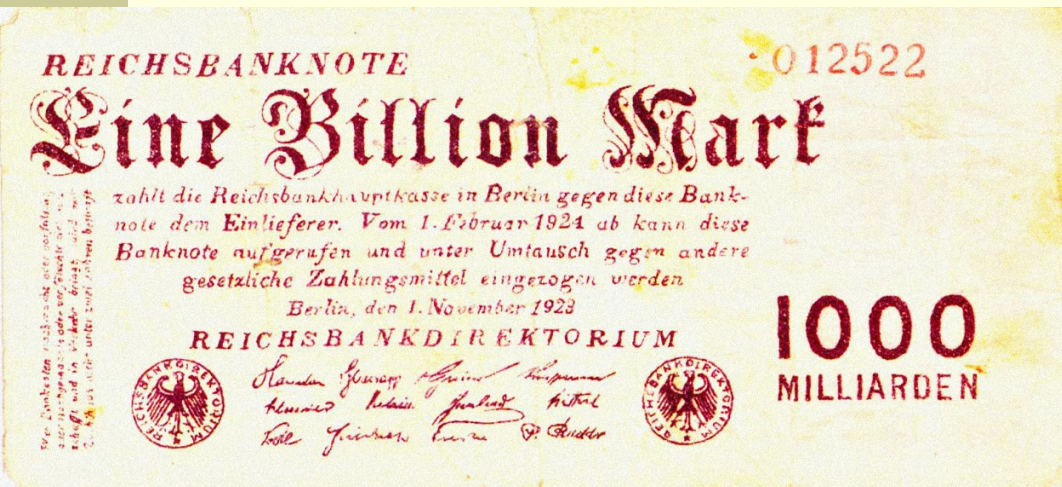 REICHSBANKNOTE
012522
Eine Billion Mark
zahlt die Reichsbankhauptkasse in Berlin gegen diese Bank-
note dem Einlieferer. Vom 1. Februar 1924 ab kann diese
Banknote aufgerufen und unter Umtausch gegen andere
gesetzliche Zahlungsmittel eingezogen werden
Berlin, den 1. November 1923
REICHSBANKDIREKTORIUM
1000
MILLIARDEN
REICHSBANKDIREKTORIUM
REICHSBANKDIREKTORIUM
Wer Banknoten
schafft und in Verkehr bringt, wird
unter zwei Jahren bestraft